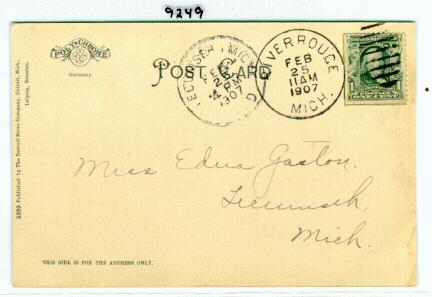 9249
POLYCHROME
Germany.
POST CARD
TECUMSEH MICH
FEB
25
4 PM
1907
RIVER ROUGE
FEB
25
11AM
1907
MICH.
5399 Published by The Detroit News Company, Detroit, Mich.,
Leipzig, Dresden.
Miss Edna Gaston.
Tecumseh,
Mich.
THIS SIDE IS FOR THE ADDRESS ONLY.